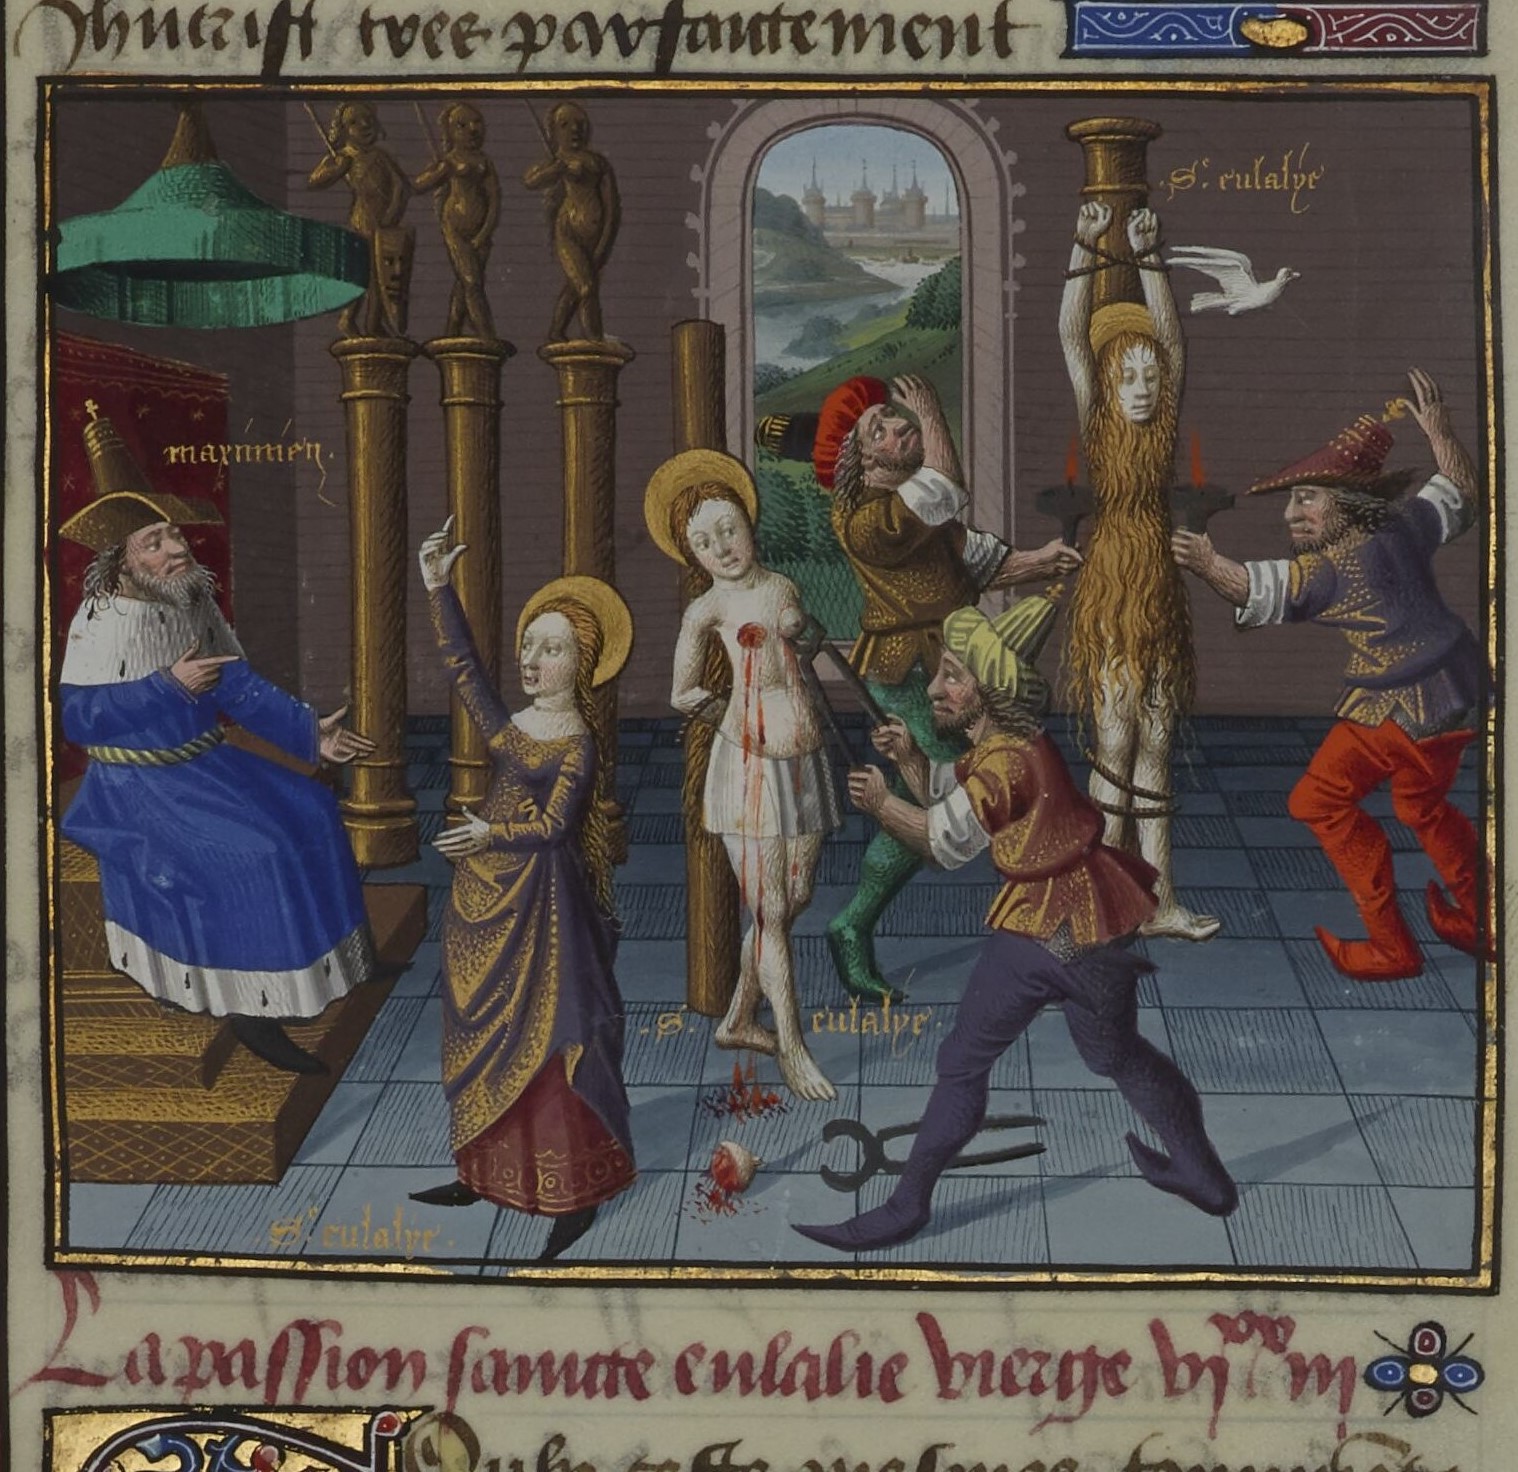 Jhucrist tres parfaictement
Se. eulalye
maximien.
.S. eulalye.
Se. eulalye.
La passion saincte eulalie vierge vi xx iii